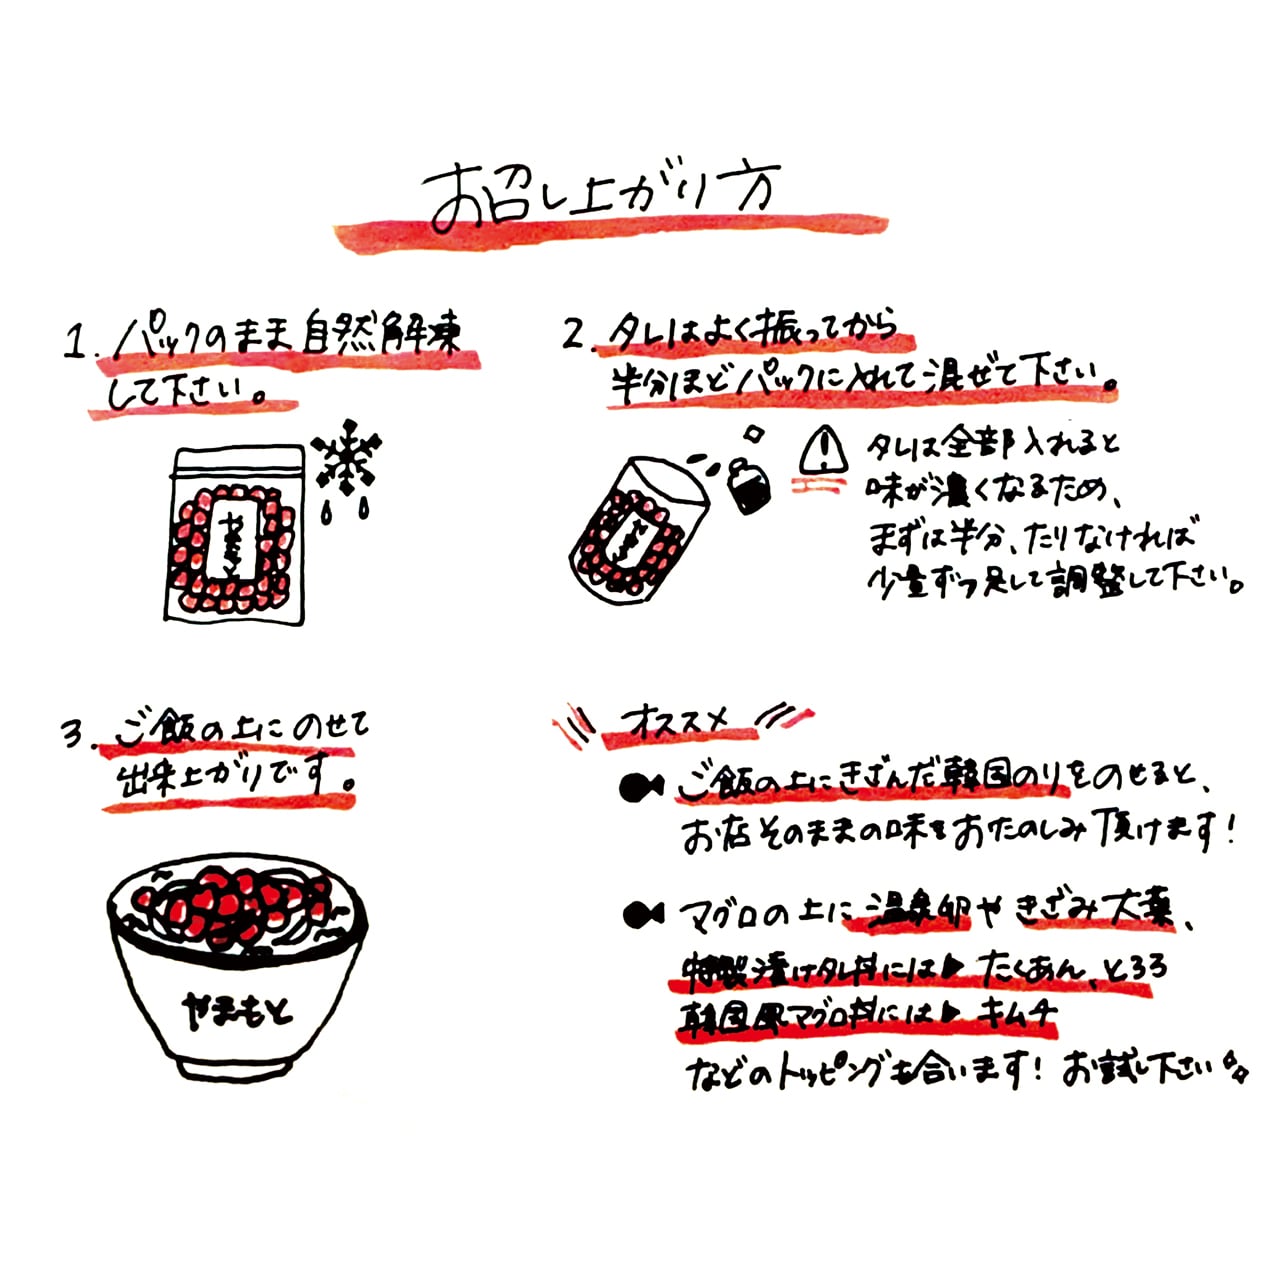 お召し上がり方
1. パックのまま自然解凍
して下さい。
やまもと
2. タレはよく振ってから
半分ほどパックに入れて混ぜて下さい。
やまもと
タレは全部入れると
味が濃くなるため、
まずは半分、たりなければ
少量ずつ足して調整して下さい。
3. ご飯の上にのせて
出来上がりです。
やまもと
オススメ
ご飯の上にきざんだ韓国のりをのせると、
お店そのままの味をおたのしみ頂けます!
マグロの上に温泉卵やきざみ大葉、
特製漬けタレ丼には▶たくあん、とろろ
韓国風マグロ丼には▶キムチ
などのトッピングも合います! お試し下さい